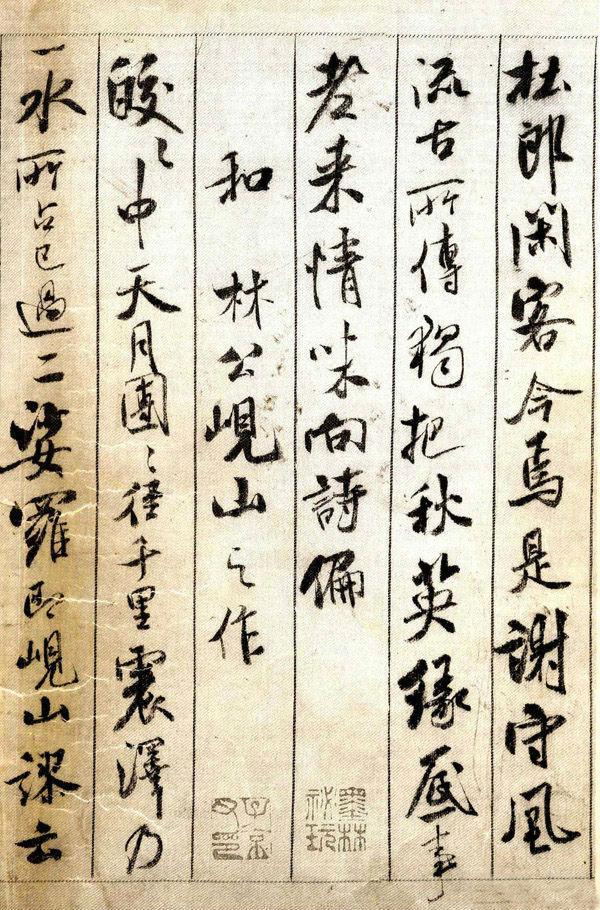 杜郎閑客今焉是謝守風
流古所傳獨把秋英緣底事
老来情味向詩偏
墨林祕玩
和 林公峴山之作
子京父印
皎〻中天月團〻径千里震澤乃
一水所占已過二娑羅即峴山謬云